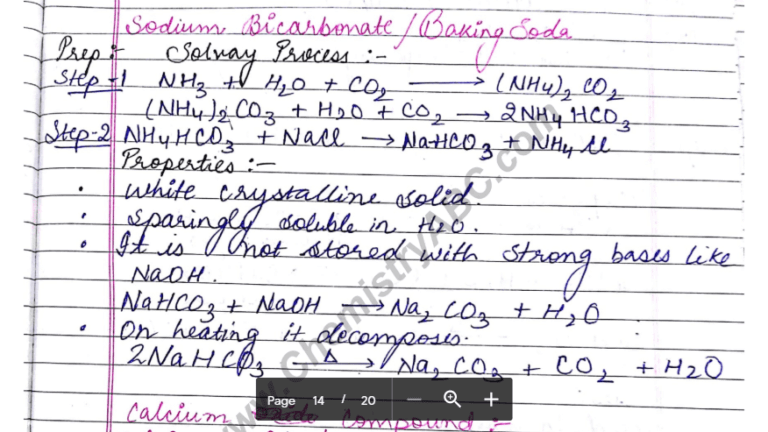 Sodium Bicarbonate/Baking Soda
Prep:- Solvay Process :-
Step-1 NH3 + H2O + CO2 ⟶ (NH4)2 CO2
(NH4)2 CO3 + H2O + CO2 ⟶ 2NH4 HCO3
Step-2 NH4HCO3 + NaCl ⟶ NaHCO3 + NH4 Cl
Properties :-
• White crystalline solid.
• Sparingly soluble in H2O.
• It is not stored with strong bases like
NaOH.
NaHCO3 + NaOH ⟶ Na2 CO3 + H2O
• On heating it decomposes.
2NaHCO3 Δ⟶ Na2 CO3 + CO2 + H2O
Page 14 / 20
Calcium Compound :-
www.ChemistryABC.com